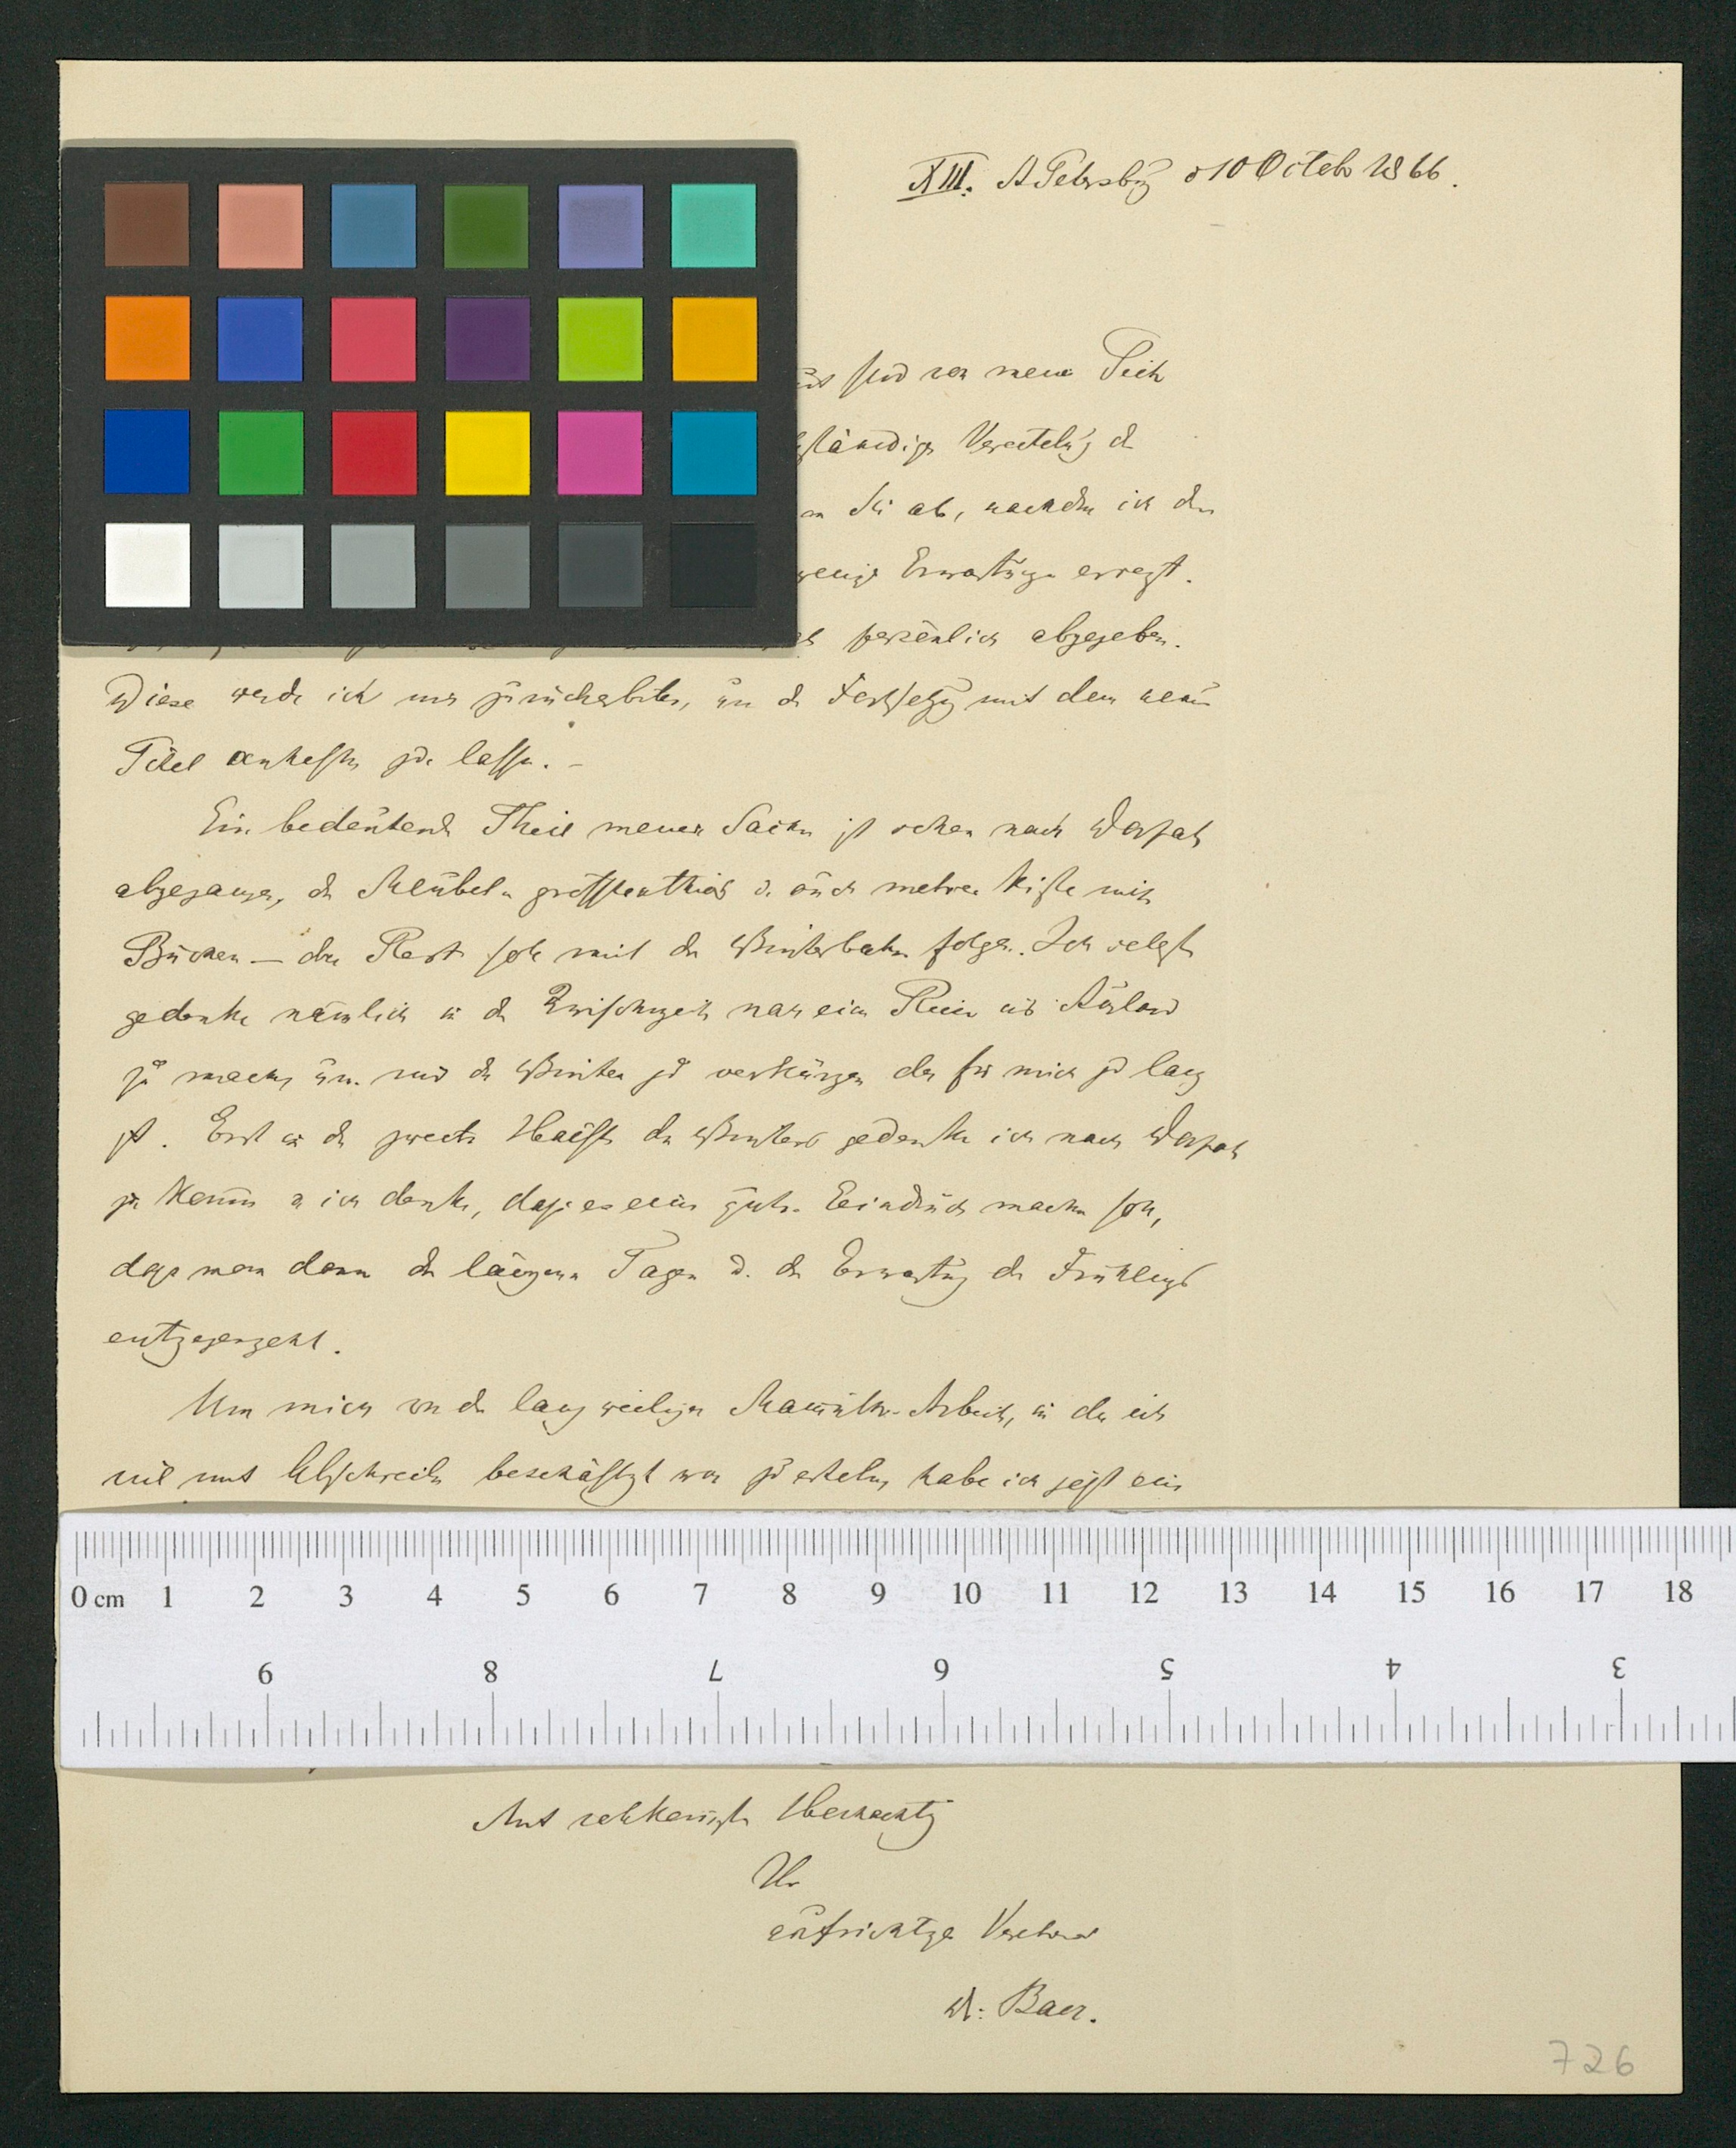 XIII. St Petersbg d 10 Octob 1866.
sind von meine Seite
ständige Verertelug d
Sie ab, nachdem ich den
wenige Erwartungen erregt.
persönlich abgegeben.
Diese werde ich mir zurückerbitten, um d Fortsetzg mit dem neuen
Titel anheften zu lassen. –
Ein bedeutend Theil meiner Sachen ist schon nach Dorpat
abgegangen, die Meubeln grösstentheils u. auch mehrere Kisten mit
Büchern — der Rest soll mit der Winterbahn folgen. Ich selbst
gedenke nämlich in d Zwischenzeit noch eine Reise ins Ausland
zu machen, um mir den Winter zu verkürzen der für mich zu lang
ist. Erst in d zweiten Hälfte des Winters gedenke ich nach Dorpat
zu kommen u ich denke, dass es einen guten Eindruck machen soll,
dass man dann den längern Tagen u. der Erwartung des Frühlings
entgegengeht.
Um mich von der langweiligen Mamuth-Arbeit, in der ich
viel mit Abschreiben beschäftigt war zu erholen habe ich jetzt ein
0 cm 1 2 3 4 5 6 7 8 9 10 11 12 13 14 15 16 17 18
9 8 7 6 5 4 3
Mit vollkommenster Hochachtg
Ihr
aufrichtiger Verehrer
v. Baer.
726